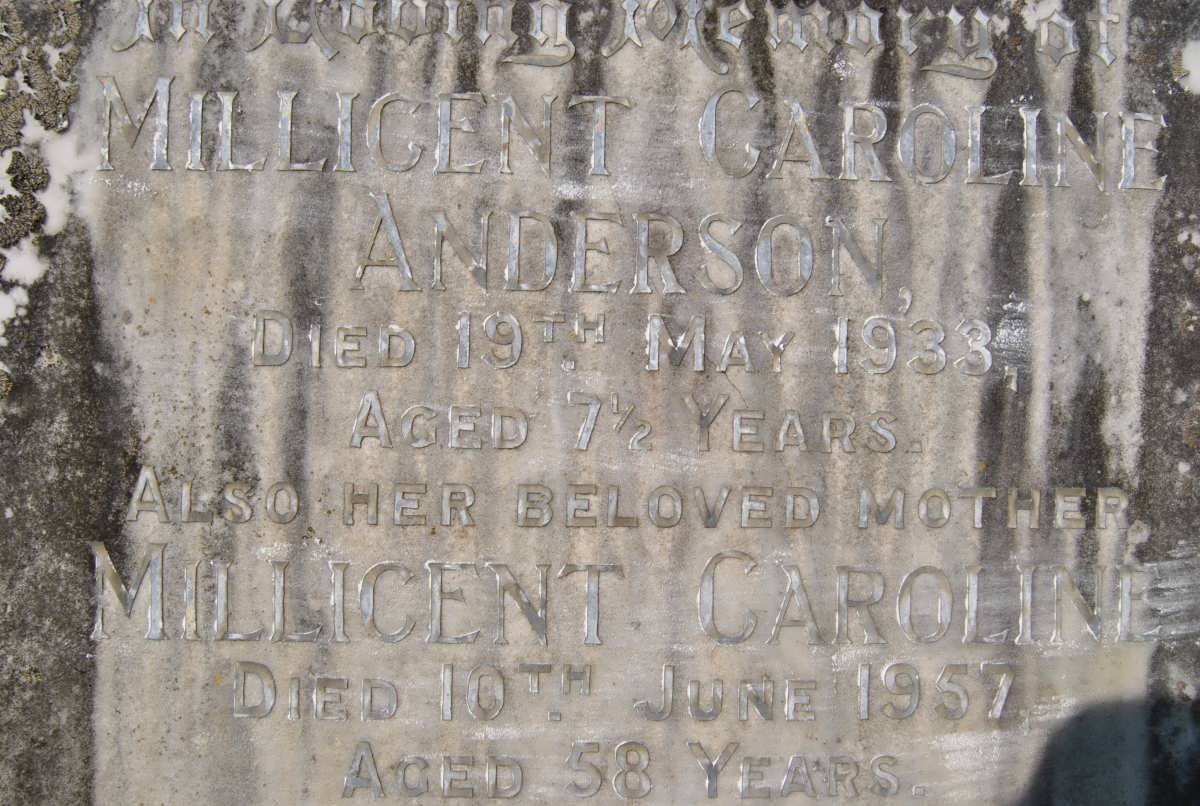 In Loving Memory of
MILLICENT CAROLINE
ANDERSON,
DIED 19TH. MAY 1933,
AGED 7½ YEARS.
ALSO HER BELOVED MOTHER,
MILLICENT CAROLINE
DIED 10TH. JUNE 1957
AGED 58 YEARS.